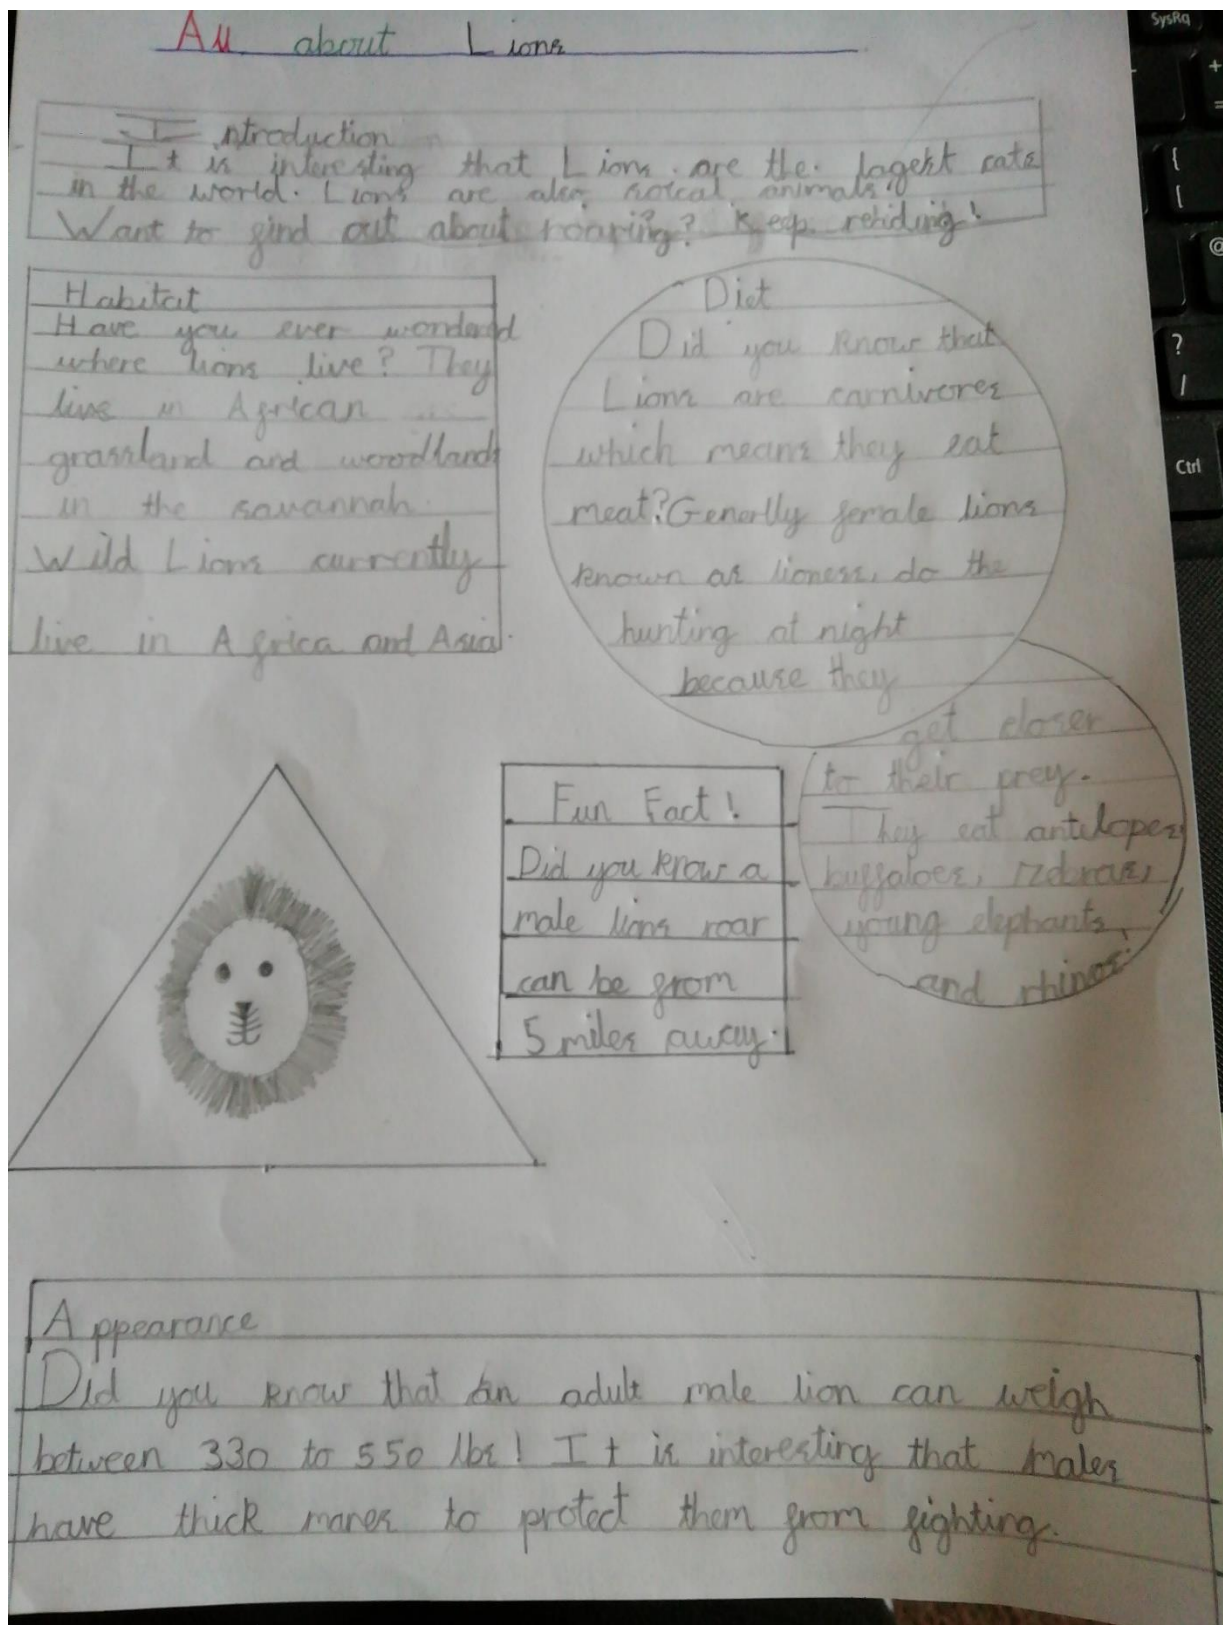 All about Lions
Introduction
It is interesting that Lions are the lagest cats
in the world. Lions are also soical animals.
Want to find out about roaring? Keep rehiding!
Habitat
Have you ever wondered
where lions live? They
live in African
grassland and woodlands
in the savannah.
Wild Lions currently
live in Africa and Asia.
Diet
Did you know that
Lions are carnivores
which means they eat
meat? Generlly female lions
known as lioness, do the
hunting at night
because they
get closer
to their prey.
They eat antelopes,
buffaloes, zebras,
young elephants,
and rhinos.
Fun Fact!
Did you know a
male lions roar
can be from
5 miles away.
Appearance
Did you know that an adult male lion can weigh
between 330 to 550 lbs! It is interesting that males
have thick manes to protect them from fighting.
SysRq
+
=
{
[
@
?
/
Ctrl